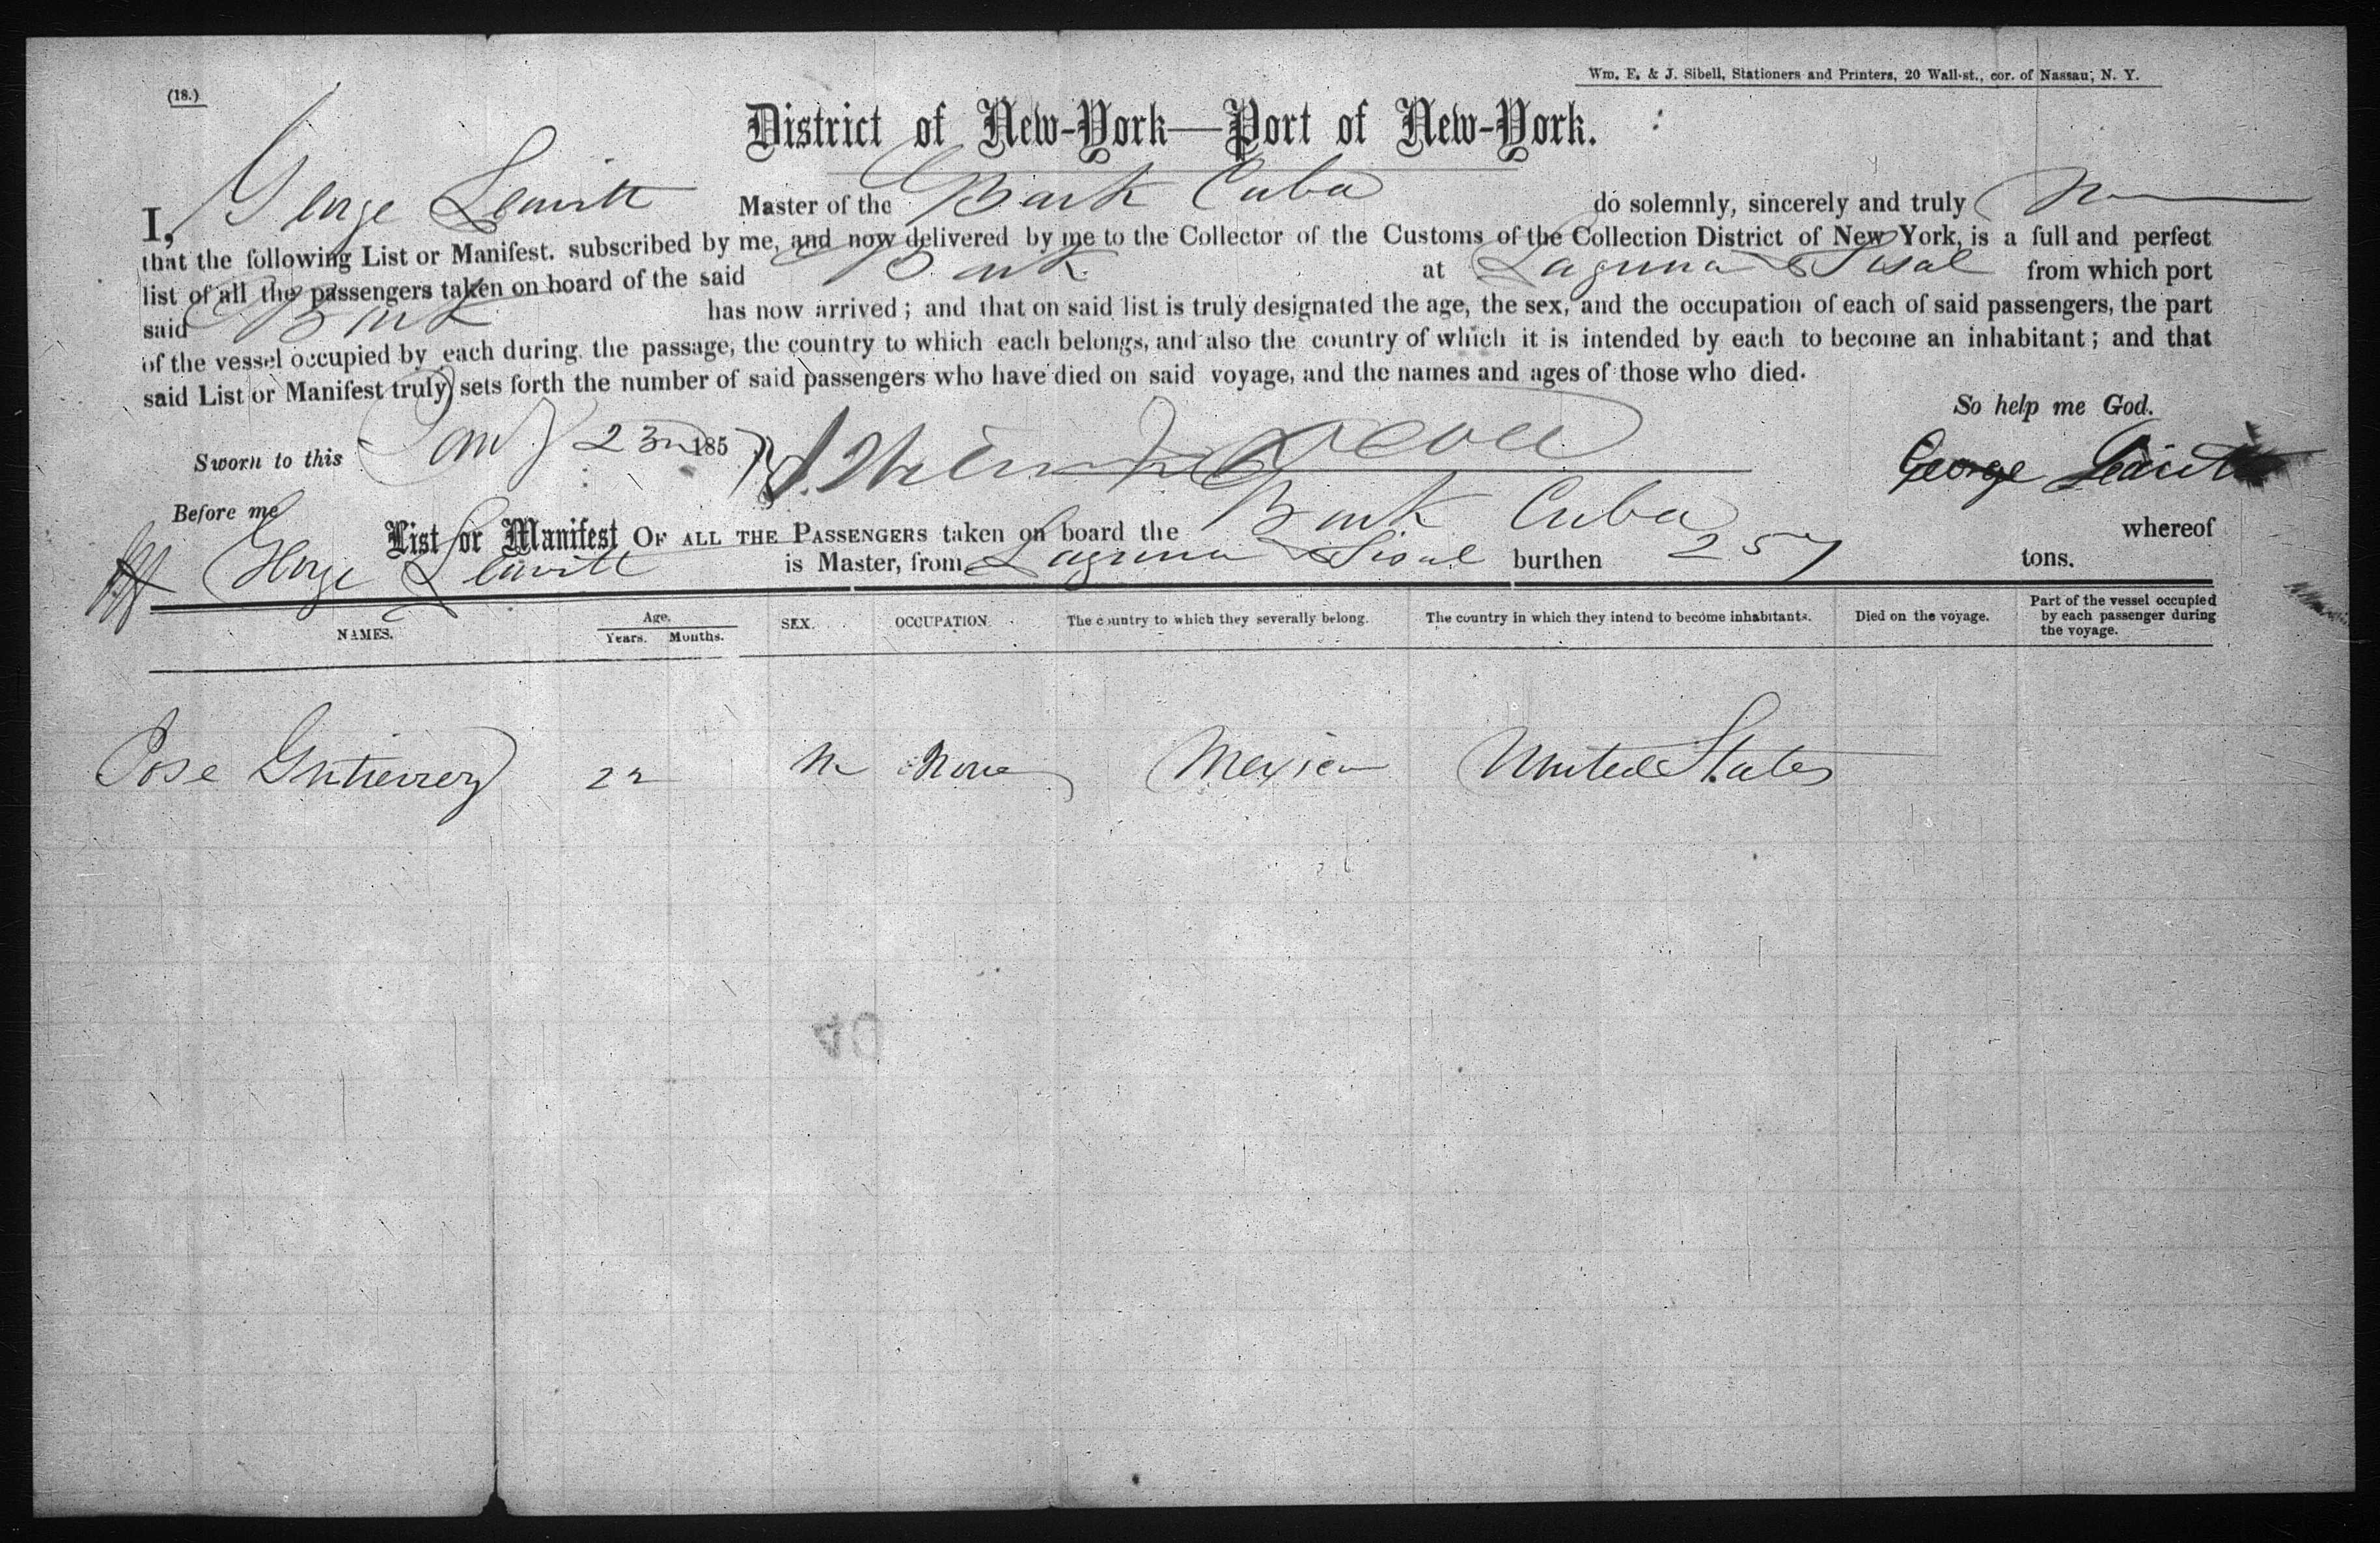 (18.)
Wm. E. & J. Sibell, Stationers and Printers, 20 Wall-st., cor. of Nassau, N. Y.
District of New-York—Port of New-York.
I, George Leavitt Master of the Bark Cuba do solemnly, sincerely and truly
that the following List or Manifest. subscribed by me, and now delivered by me to the Collector of the Customs of the Collection District of New York, is a full and perfect
list of all the passengers taken on board of the said Bark at Laguna & Sisal from which port
said Bark has now arrived; and that on said list is truly designated the age, the sex, and the occupation of each of said passengers, the part
of the vessel occupied by each during the passage, the country to which each belongs, and also the country of which it is intended by each to become an inhabitant; and that
said List or Manifest truly sets forth the number of said passengers who have died on said voyage, and the names and ages of those who died.
So help me God.
Sworn to this Jany 23 185
George Leavitt
Before me
List or Manifest OF ALL THE PASSENGERS taken on board the Bark Cuba whereof
George Leavitt is Master, from Laguna & Sisal burthen 257 tons.
NAMES. Age. Years. Months. SEX. OCCUPATION. The country to which they severally belong. The country in which they intend to become inhabitants. Died on the voyage. Part of the vessel occupied by each passenger during the voyage.
Jose Gutierrez 22 M None Mexico United States
40